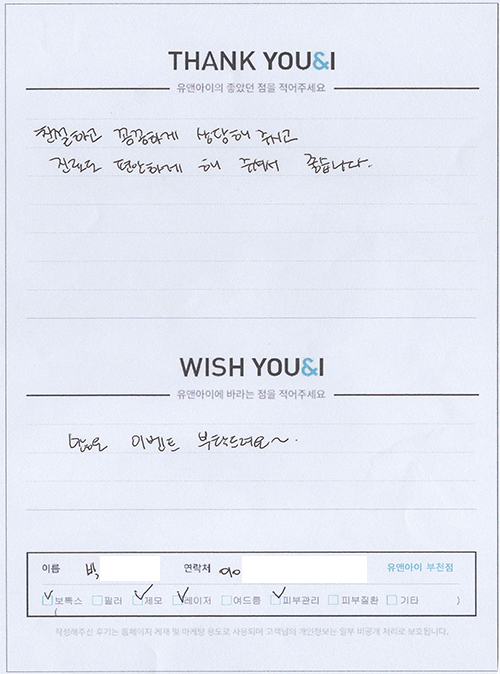 THANK YOU&I
유앤아이의 좋았던 점을 적어주세요
친절하고 꼼꼼하게 상담해 주시고
진료도 편안하게 해 주셔서 좋습니다.
WISH YOU&I
유앤아이에 바라는 점을 적어주세요
많은 이벤트 부탁드려요~.
이름 박 연락처 010 유앤아이 부천점
보톡스 필러 제모 레이저 여드름 피부관리 피부질환 기타 )
(
작성해주신 후기는 홈페이지 게재 및 마케팅 용도로 사용되며 고객님의 개인정보는 일부 비공개 처리로 보호됩니다.